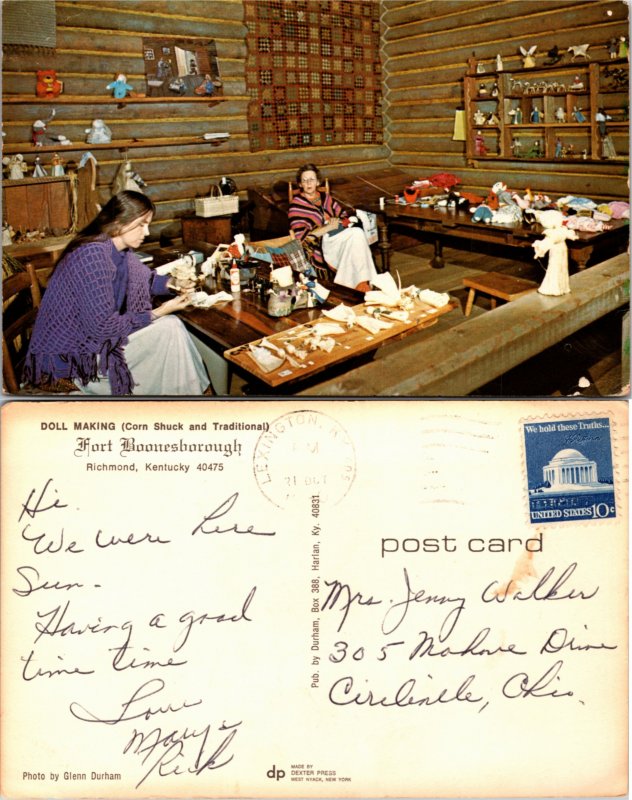 DOLL MAKING (Corn Shuck and Traditional)
Fort Boonesborough
Richmond, Kentucky 40475
LEXINGTON, KY
PM
21 OCT
We hold these Truths...
UNITED STATES 10c
post card
Hi.
We were here
Sun-
Having a good
time time
Love
Mary &
Rick
Pub. by Durham, Box 388, Harlan, Ky. 40831
Mrs. Jenny Walker
305 Mohave Drive
Circleville, Ohio.
Photo by Glenn Durham
dp
MADE BY
DEXTER PRESS
WEST NYACK, NEW YORK